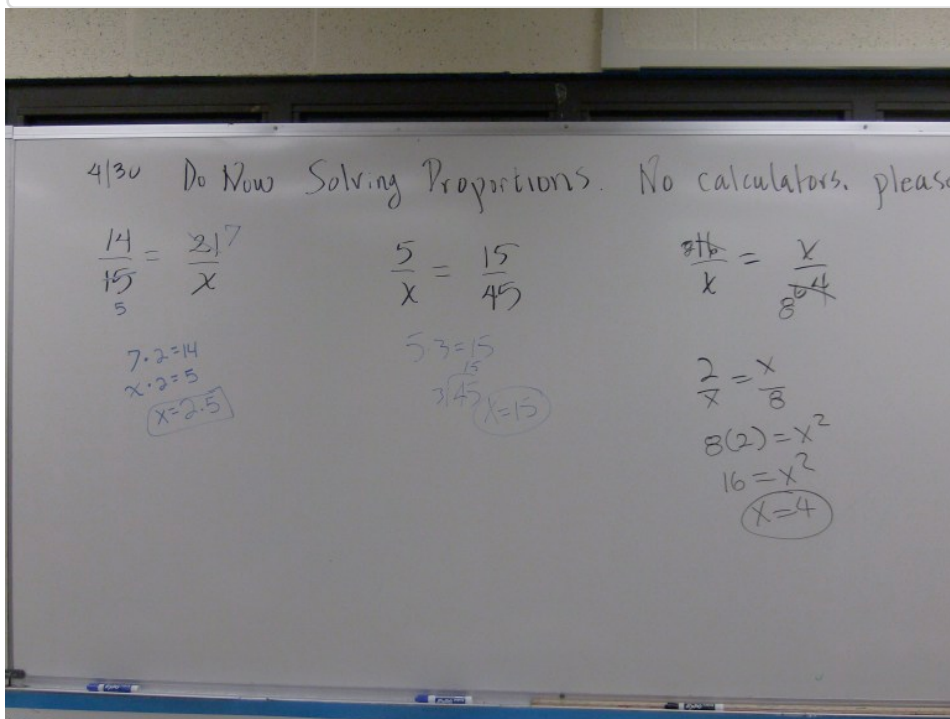 4/30 Do Now Solving Proportions. No calculators, please
14/15 = 21/x
7
5
7·2=14
x·2=5
x=2.5
5/x = 15/45
5·3=15
15
3)45
x=15
16/x = x/64
8
2/x = x/8
8(2)=x²
16=x²
x=4